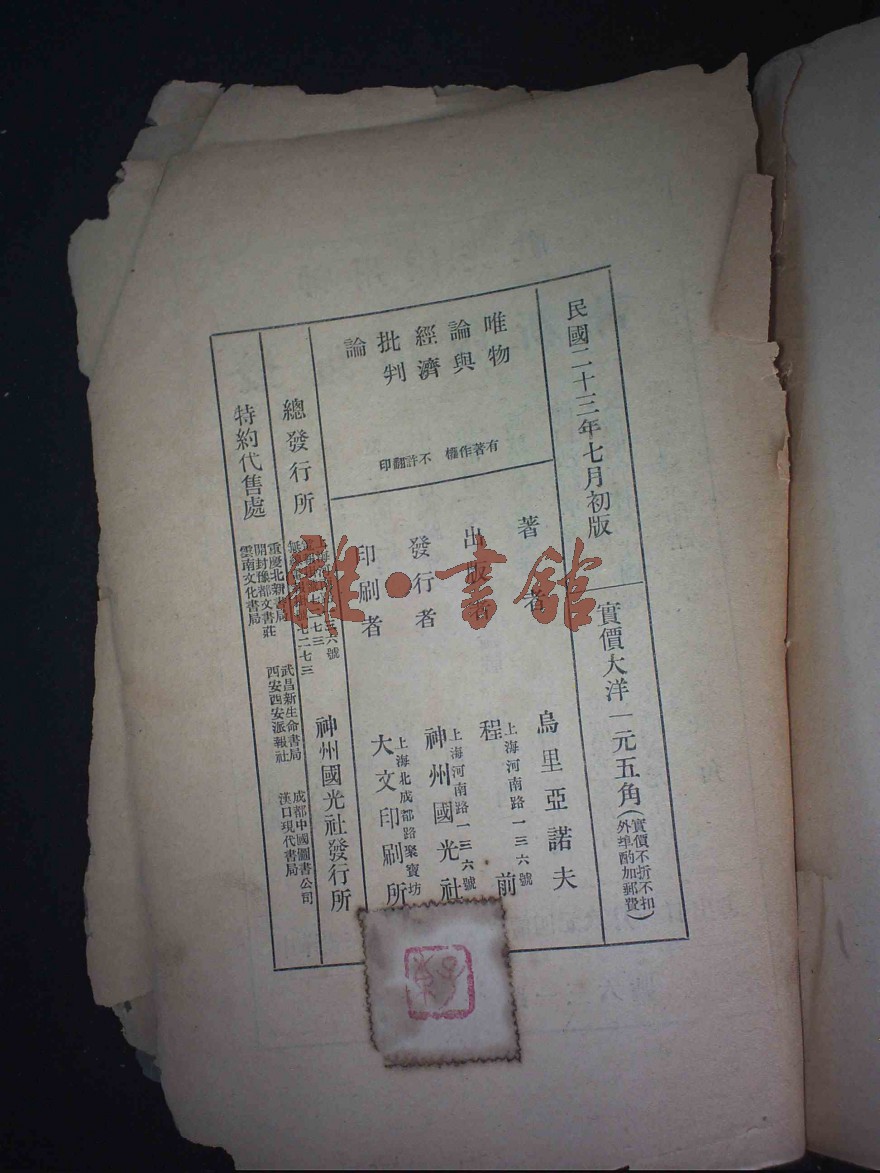 民國二十三年七月初版
實價大洋一元五角(實價不折不扣
外埠酌加郵費)
唯物
論與
經濟
批判
論
有著作權 不許翻印
著者 烏里亞諾夫
出版者 上海河南路一三六號
程前
發行者 上海河南路一三六號
神州國光社
印刷者 上海北成都路聚寶坊
大文印刷所
總發行所
神州國光社發行所
特約代售處
重慶北新書局
開封豫都文書莊
雲南文化書局
武昌新生命書局
西安西安派報社
成都中國圖書公司
漢口現代書局
雜·書館